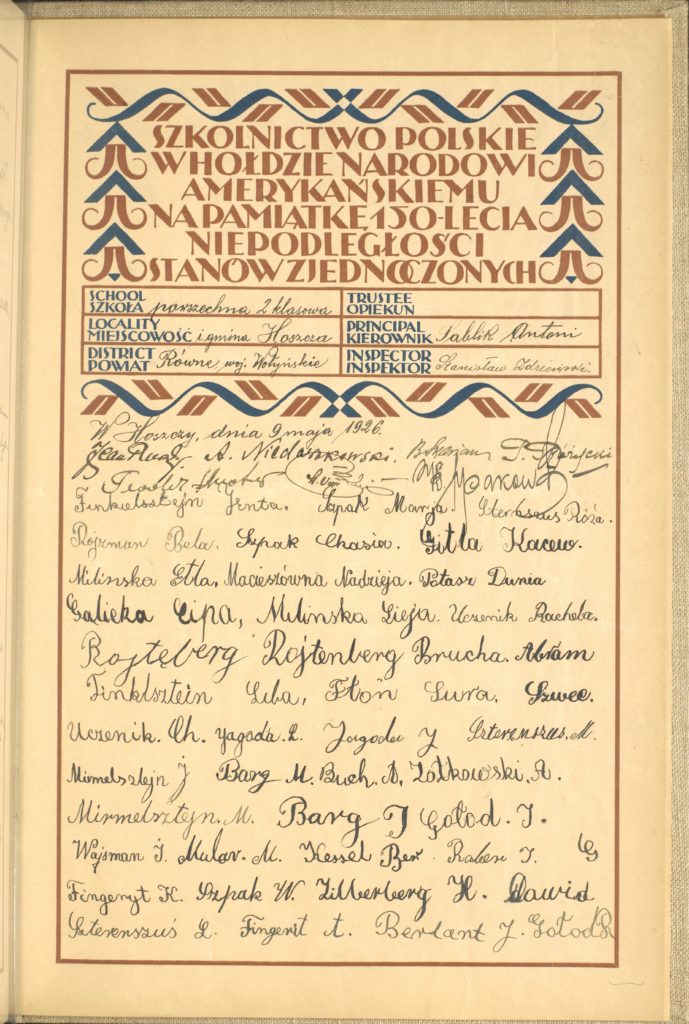 SZKOLNICTWO POLSKIE
W HOŁDZIE NARODOWI
AMERYKAŃSKIEMU
NA PAMIĄTKĘ 150-LECIA
NIEPODLEGŁOŚCI
STANÓW ZJEDNOCZONYCH
SCHOOL
SZKOŁA powszechna 2 klasowa
TRUSTEE
OPIEKUN
LOCALITY
MIEJSCOWOŚĆ i gmina Hoszcza
PRINCIPAL
KIEROWNIK Sablik Antoni
DISTRICT
POWIAT Równe, woj. Wołyńskie
INSPECTOR
INSPEKTOR Stanisław
W Hoszczy, dnia 9 maja 1926.
A. Niedaszkowski.
Finkielsztejn Jenta. Szpak Marja. Sternszus Róża.
Rojzman Bela. Szpak Chasia. Gitla Kacew.
Milinska Etla, Macieszówna Nadzieja. Potasz Dunia
Galicka Cipa, Milinska Lieja. Uczenik Rachela.
Rojtęberg Rojtenberg Brucha. Abram
Finklsztein Luba, Fłon Sura. Szwec.
Uczenik. Ch. Yagada. L. Jagoda J Szternszus. M.
Mirmelsztejn J Barg M. Buch. A, Żołkowski. A.
Mirmelsztejn. M. Barg J Gołod. J.
Wajsman J. Mular. M. Kessel Ber. Raber J. G
Fingeryt K. Szpak W. Zilberberg H. Dawid
Szterenszuś L. Fingerit A. Berlant J. Gołod R